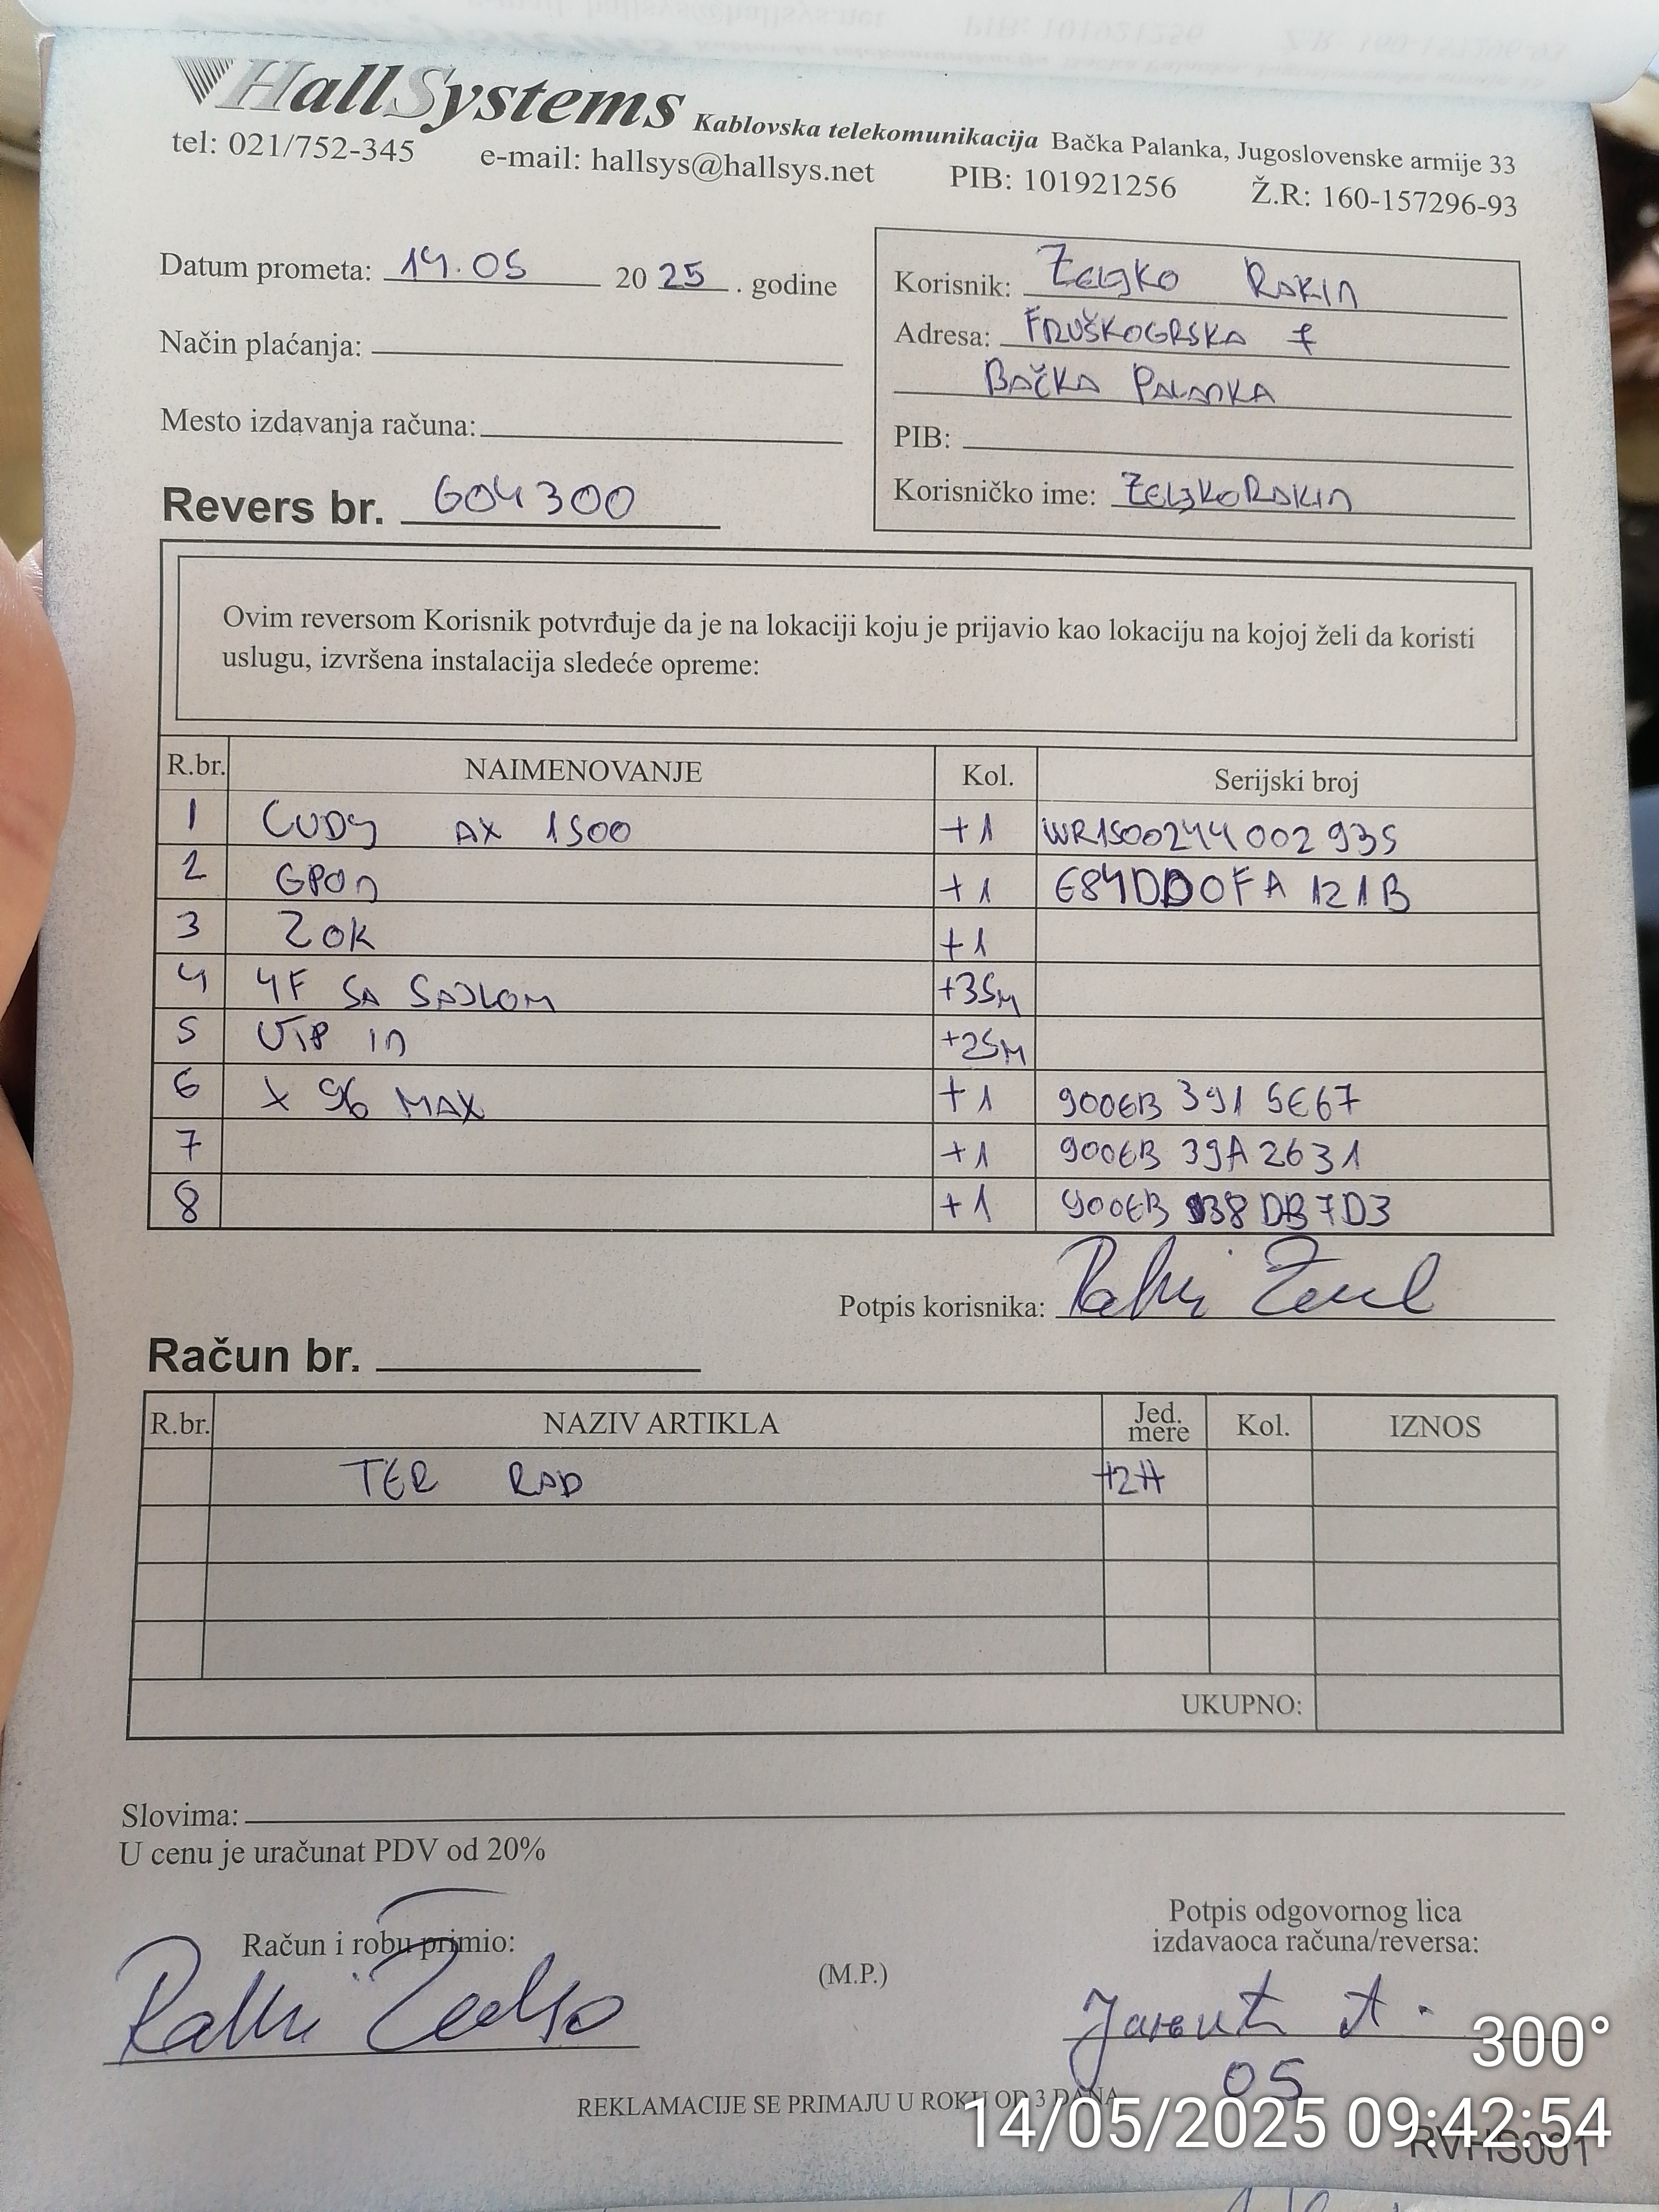 HallSystems Kablovska telekomunikacija Bačka Palanka, Jugoslovenske armije 33
tel: 021/752-345 e-mail: hallsys@hallsys.net PIB: 101921256 Ž.R: 160-157296-93
Datum prometa: 14.05 2025. godine
Način plaćanja:
Mesto izdavanja računa:
Revers br. 604300
Korisnik: ŽELJKO RAKIN
Adresa: FRUŠKOGRSKA 7
BAČKA PALANKA
PIB:
Korisničko ime: ZELJKORAKIN
Ovim reversom Korisnik potvrđuje da je na lokaciji koju je prijavio kao lokaciju na kojoj želi da koristi
uslugu, izvršena instalacija sledeće opreme:
R.br. NAIMENOVANJE Kol. Serijski broj
1 CUDY AX 1500 +1 WR1500244002935
2 GPON +1 E84DD0FA121B
3 ZOK +1
4 4F SA SAJLOM +35M
5 UTP IN +25M
6 X 96 MAX +1 900EB 391 5E67
7 +1 900EB 39A2631
8 +1 900EB 38DB7D3
Potpis korisnika:
Račun br.
R.br. NAZIV ARTIKLA Jed. mere Kol. IZNOS
TER RAD +2H
UKUPNO:
Slovima:
U cenu je uračunat PDV od 20%
Račun i robu primio:
(M.P.)
Potpis odgovornog lica
izdavaoca računa/reversa:
05
REKLAMACIJE SE PRIMAJU U ROKU OD 3 DANA
RVHS001
300°
14/05/2025 09:42:54